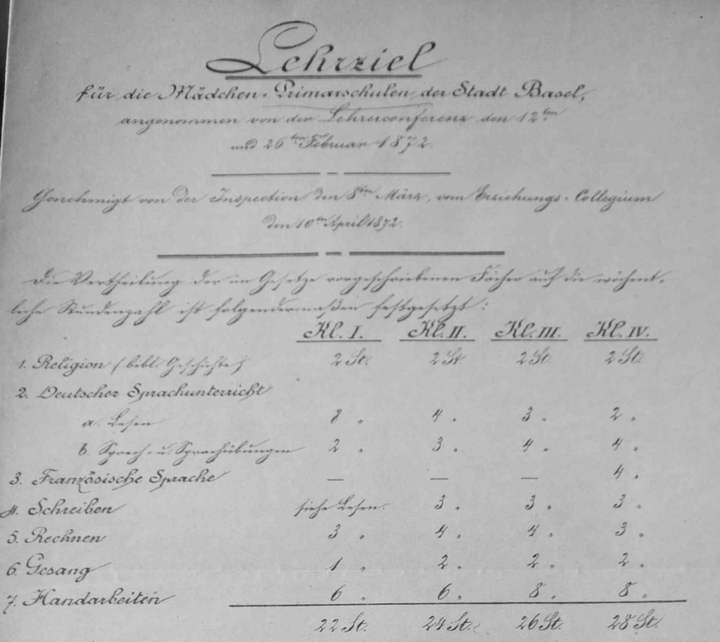 Lehrziel
für die Mädchen-Primarschulen der Stadt Basel,
angenommen von der Lehrerconferenz den 12ten
und 26ten Februar 1872.
Genehmigt von der Inspection den 8ten März, vom Erziehungs-Collegium
den 10ten April 1872.
Die Vertheilung der im Gesetze vorgeschriebenen Fächer auf die wöchent-
liche Stundenzahl ist folgendermaßen festgesetzt:
Kl. I. Kl. II. Kl. III. Kl. IV.
1. Religion (bibl. Geschichte) 2 St. 2 St. 2 St. 2 St.
2. Deutscher Sprachunterricht
a. Lesen 8 " 4 " 3 " 2 "
b. Sprech- u. Sprachübungen 2 " 3 " 4 " 4 "
3. Französische Sprache — — — 4 "
4. Schreiben siehe Lesen. 3 " 3 " 3 "
5. Rechnen 3 " 4 " 4 " 3 "
6. Gesang 1 " 2 " 2 " 2 "
7. Handarbeiten 6 " 6 " 8 " 8 "
22 St. 24 St. 26 St. 28 St.